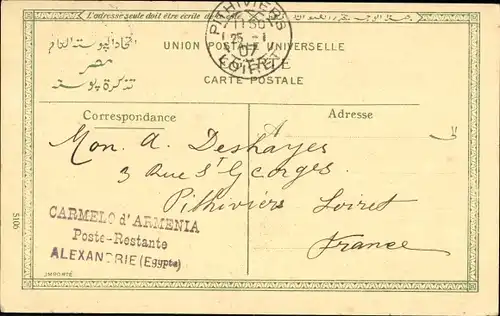 L'adresse seule doit être écrite de
PITHIVIERS
25 -1
07
LOIRET
UNION POSTALE UNIVERSELLE
CARTE POSTALE
اتحاد البوستة العام
مصر
تذكرة بوسته
Correspondance
Adresse
الى
Mon. A. Deshayes
3 Rue St Georges
Pithiviers Loiret
France
CARMELO d'ARMENIA
Poste-Restante
ALEXANDRIE (Egypte)
5106
IMPORTÉ